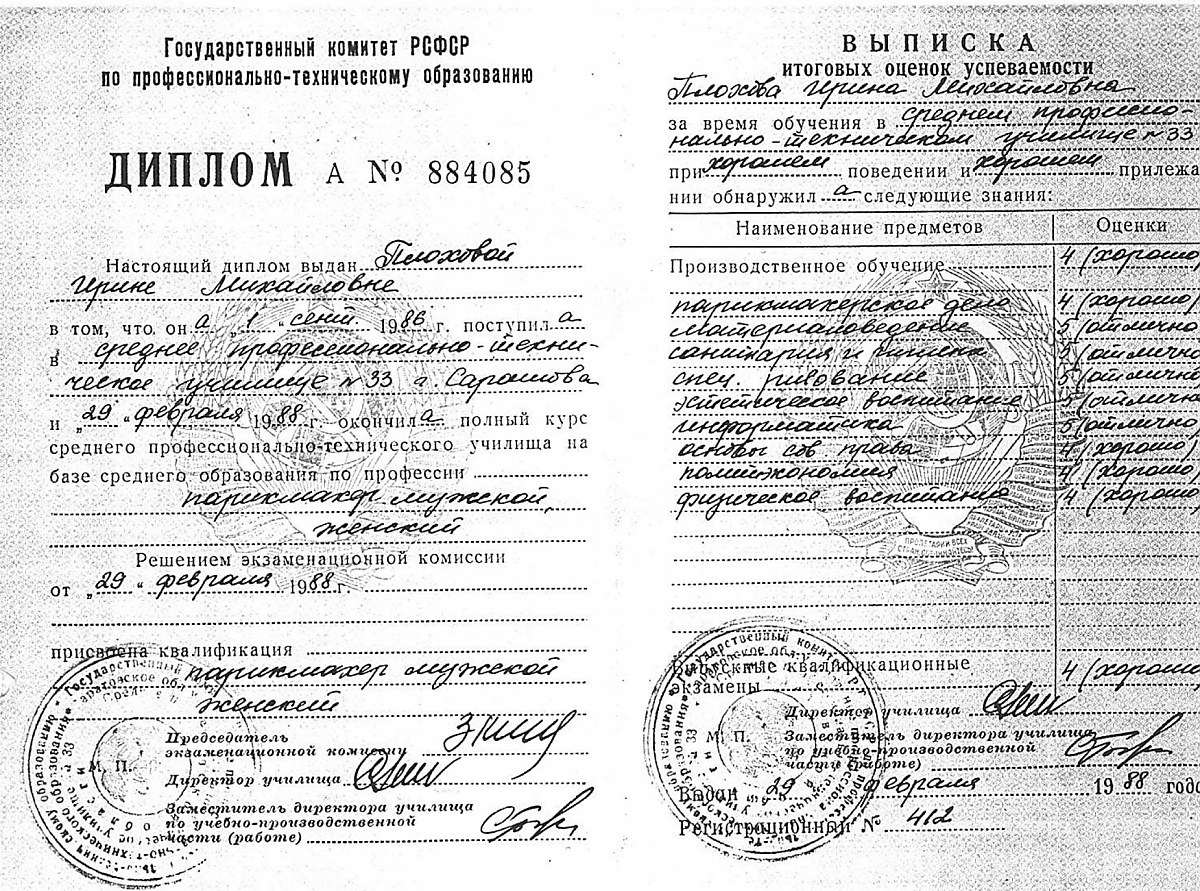 Государственный комитет РСФСР
по профессионально-техническому образованию
ДИПЛОМ А № 884085
Настоящий диплом выдан Плоховой
Ирине Михайловне
в том, что он а „1" сент 1986 г. поступил а
в среднее профессионально-техни-
ческое училище № 33 г. Саратова
и „29" февраля 1988 г. окончил а полный курс
среднего профессионально-технического училища на
базе среднего образования по профессии
парикмахер мужской,
женский
Решением экзаменационной комиссии
от „29" февраля 1988 г.
присвоена квалификация
парикмахер мужской
женский
Председатель
экзаменационной комиссии
М. П.
Директор училища
Заместитель директора училища
по учебно-производственной
части (работе)
ВЫПИСКА
итоговых оценок успеваемости
Плохова Ирина Михайловна
за время обучения в среднем професио-
нально-техническом училище № 33
при хорошем поведении и хорошем прилежа
нии обнаружил а следующие знания:
Наименование предметов Оценки
Производственное обучение 4 (хорошо)
парикмахерское дело 4 (хорошо)
материаловедение 5 (отлично
санитария и гигиена 5 (отлично
спец. рисование 5 (отлично
эстетическое воспитание 5 (отлично
информатика 5 (отлично
основы сов права 4 (хорошо)
политэкономия 4 (хорошо
физическое воспитание 4 (хорошо
Выпускные квалификационные
экзамены 4 (хорошо
Директор училища
М. П.
Заместитель директора училища
по учебно-производственной
части (работе)
Выдан 29 февраля 1988 года
Регистрационный № 412